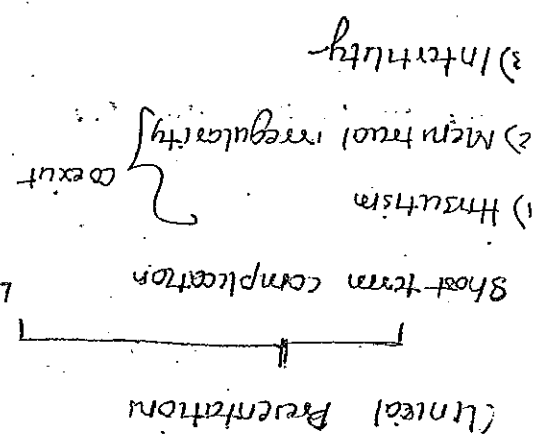 Clinical Presentation
Short term complication
1) Hirsutism
coexist
2) Menstrual irregularity
3) Infertility